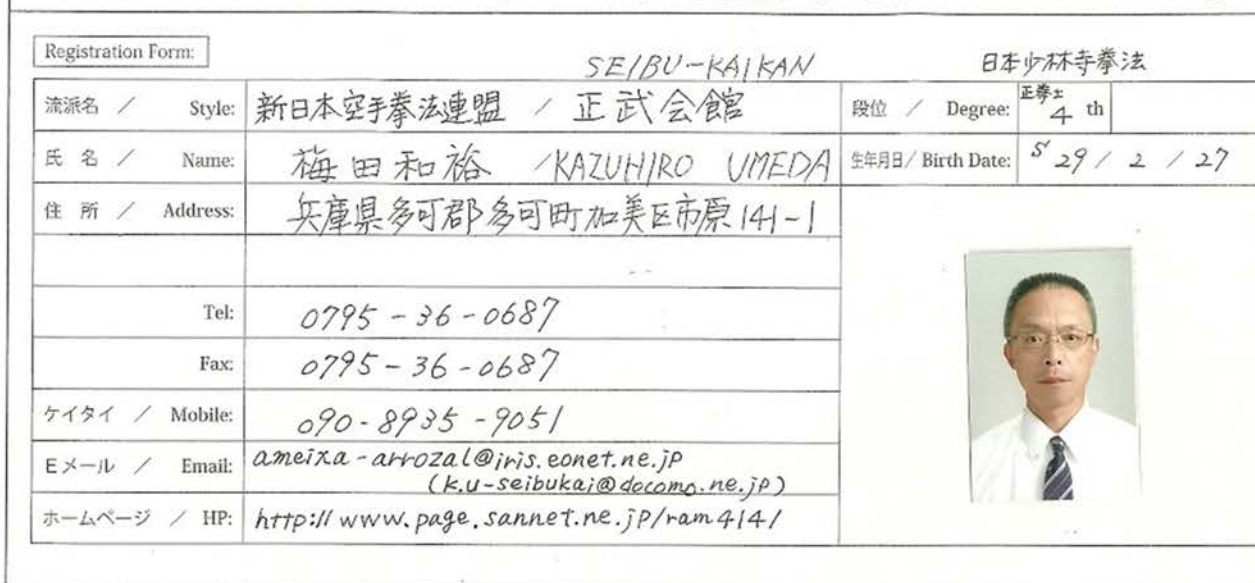 Registration Form:
SEIBU-KAIKAN 日本少林寺拳法
流派名 / Style: 新日本空手拳法連盟 / 正武会館 段位 / Degree: 正拳士 4 th
氏 名 / Name: 梅田和裕 /KAZUHIRO UMEDA 生年月日/ Birth Date: S 29 / 2 / 27
住 所 / Address: 兵庫県多可郡多可町加美区市原141-1
Tel: 0795-36-0687
Fax: 0795-36-0687
ケイタイ / Mobile: 090-8935-9051
Eメール / Email: ameixa-arrozal@iris.eonet.ne.jp
(k.u-seibukai@docomo.ne.jp)
ホームページ / HP: http://www.page.sannet.ne.jp/ram4141